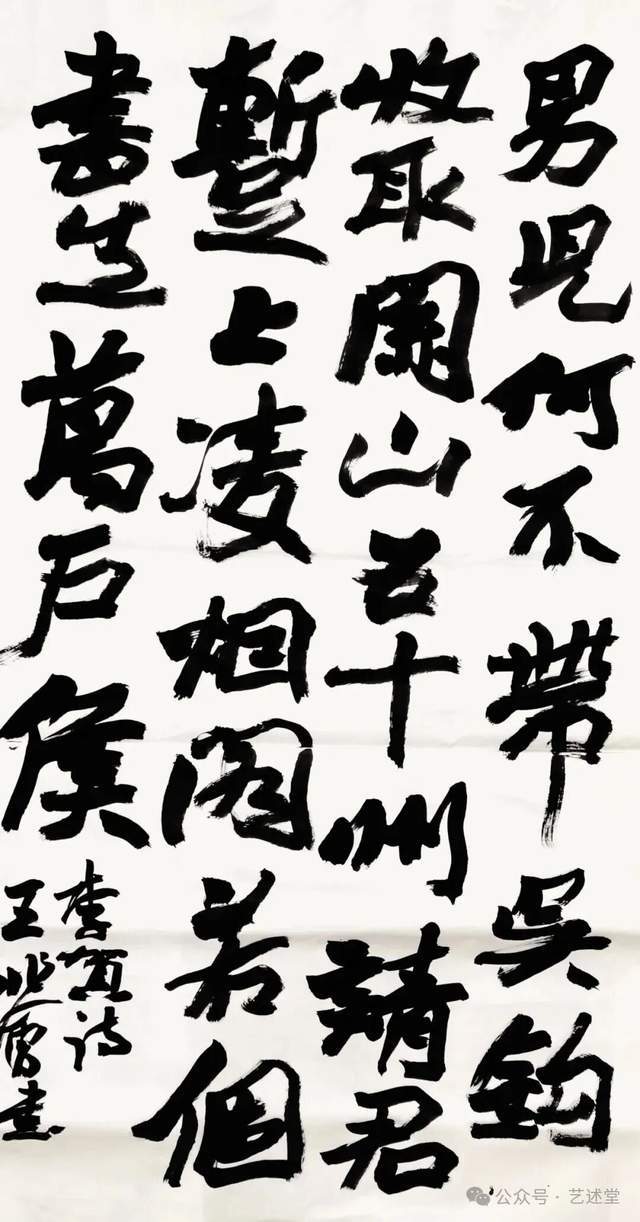 男児何不帶吳鈎
收取關山五十州請君
暫上凌烟阁若個
書生萬戶侯
李賀詩
王 書
公众号·艺述堂